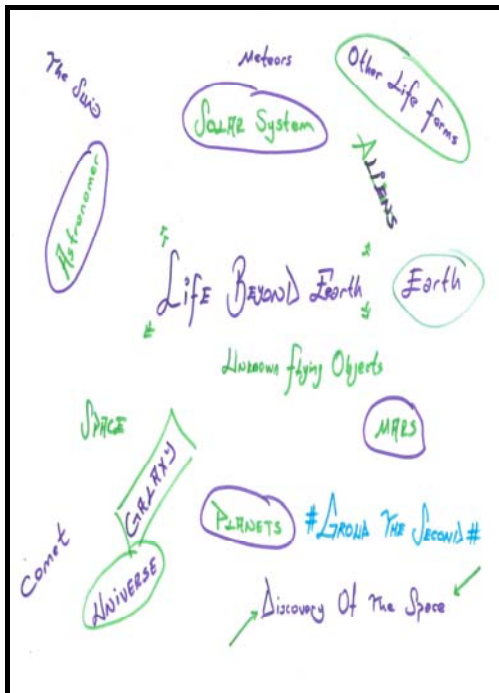 Meteors
Other Life Forms
Solar System
Astronomer
ALIENS
Life Beyond Earth
Earth
Unknown flying Objects
SPACE
MARS
GALAXY
PLANETS
Comet
UNIVERSE
Discovery Of The Space